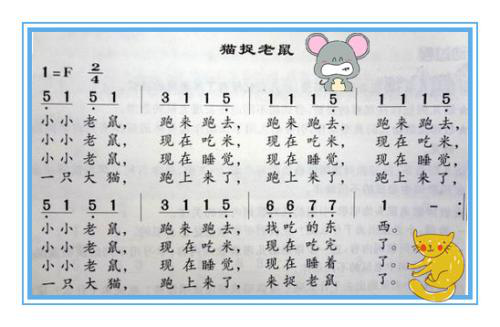 猫捉老鼠
1=F 2/4
5 1 5 1 | 3 1 1 5 | 1 1 1 5 | 1 1 1 5 |
小小老鼠， 跑来跑去， 跑来跑去， 跑来跑去，
小小老鼠， 现在吃米， 现在吃米， 现在吃米，
小小老鼠， 现在睡觉， 现在睡觉， 现在睡觉，
一只大猫， 跑上来了， 跑上来了， 跑上来了，
5 1 5 1 | 3 1 1 5 | 6 6 7 7 | 1 - :
小小老鼠， 跑来跑去， 找吃的东 西。
小小老鼠， 现在吃米， 现在吃完 了。
小小老鼠， 现在睡觉， 现在睡着 了。
一只大猫， 跑上来了， 来捉老鼠 了。